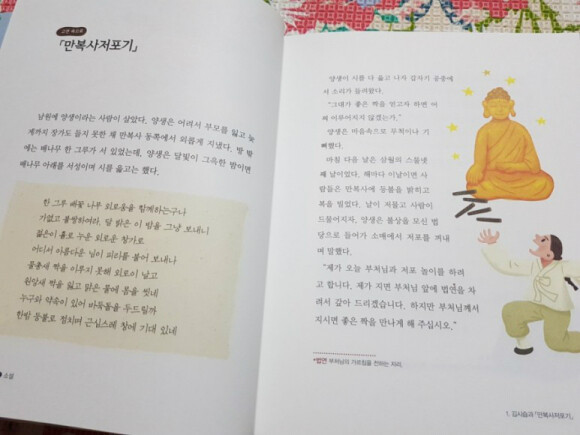 고전 속으로
「만복사저포기」
남원에 양생이라는 사람이 살았다. 양생은 어려서 부모를 잃고 늦
게까지 장가도 들지 못한 채 만복사 동쪽에서 외롭게 지냈다. 방 밖
에는 배나무 한 그루가 서 있었는데, 양생은 달빛이 그윽한 밤이면
배나무 아래를 서성이며 시를 읊고는 했다.
한 그루 배꽃 나무 외로움을 함께하는구나
가엾고 불쌍하여라. 달 밝은 이 밤을 그냥 보내니
젊은이 홀로 누운 외로운 창가로
어디서 아름다운 님이 피리를 불어 보내나
물총새 짝을 이루지 못해 외로이 날고
원앙새 짝을 잃고 맑은 물에 몸을 씻네
누구와 약속이 있어 바둑돌을 두드릴까
한밤 등불로 점치며 근심스레 창에 기대 있네
소설
양생이 시를 다 읊고 나자 갑자기 공중에
서 소리가 들려왔다.
"그대가 좋은 짝을 얻고자 하면 어
찌 이루어지지 않겠는가."
양생은 마음속으로 무척이나 기
뻐했다.
마침 다음 날은 삼월의 스물넷
째 날이었다. 해마다 이날이면 사
람들은 만복사에 등불을 밝히고
복을 빌었다. 날이 저물고 사람이
드물어지자, 양생은 불상을 모신 법
당으로 들어가 소매에서 저포를 꺼내
며 말했다.
"제가 오늘 부처님과 저포 놀이를 하려
고 합니다. 제가 지면 부처님 앞에 법연을 차
려서 갚아 드리겠습니다. 하지만 부처님께서
지시면 좋은 짝을 만나게 해 주십시오."
*법연 부처님의 가르침을 전하는 자리.
1. 김시습과 「만복사저포기」